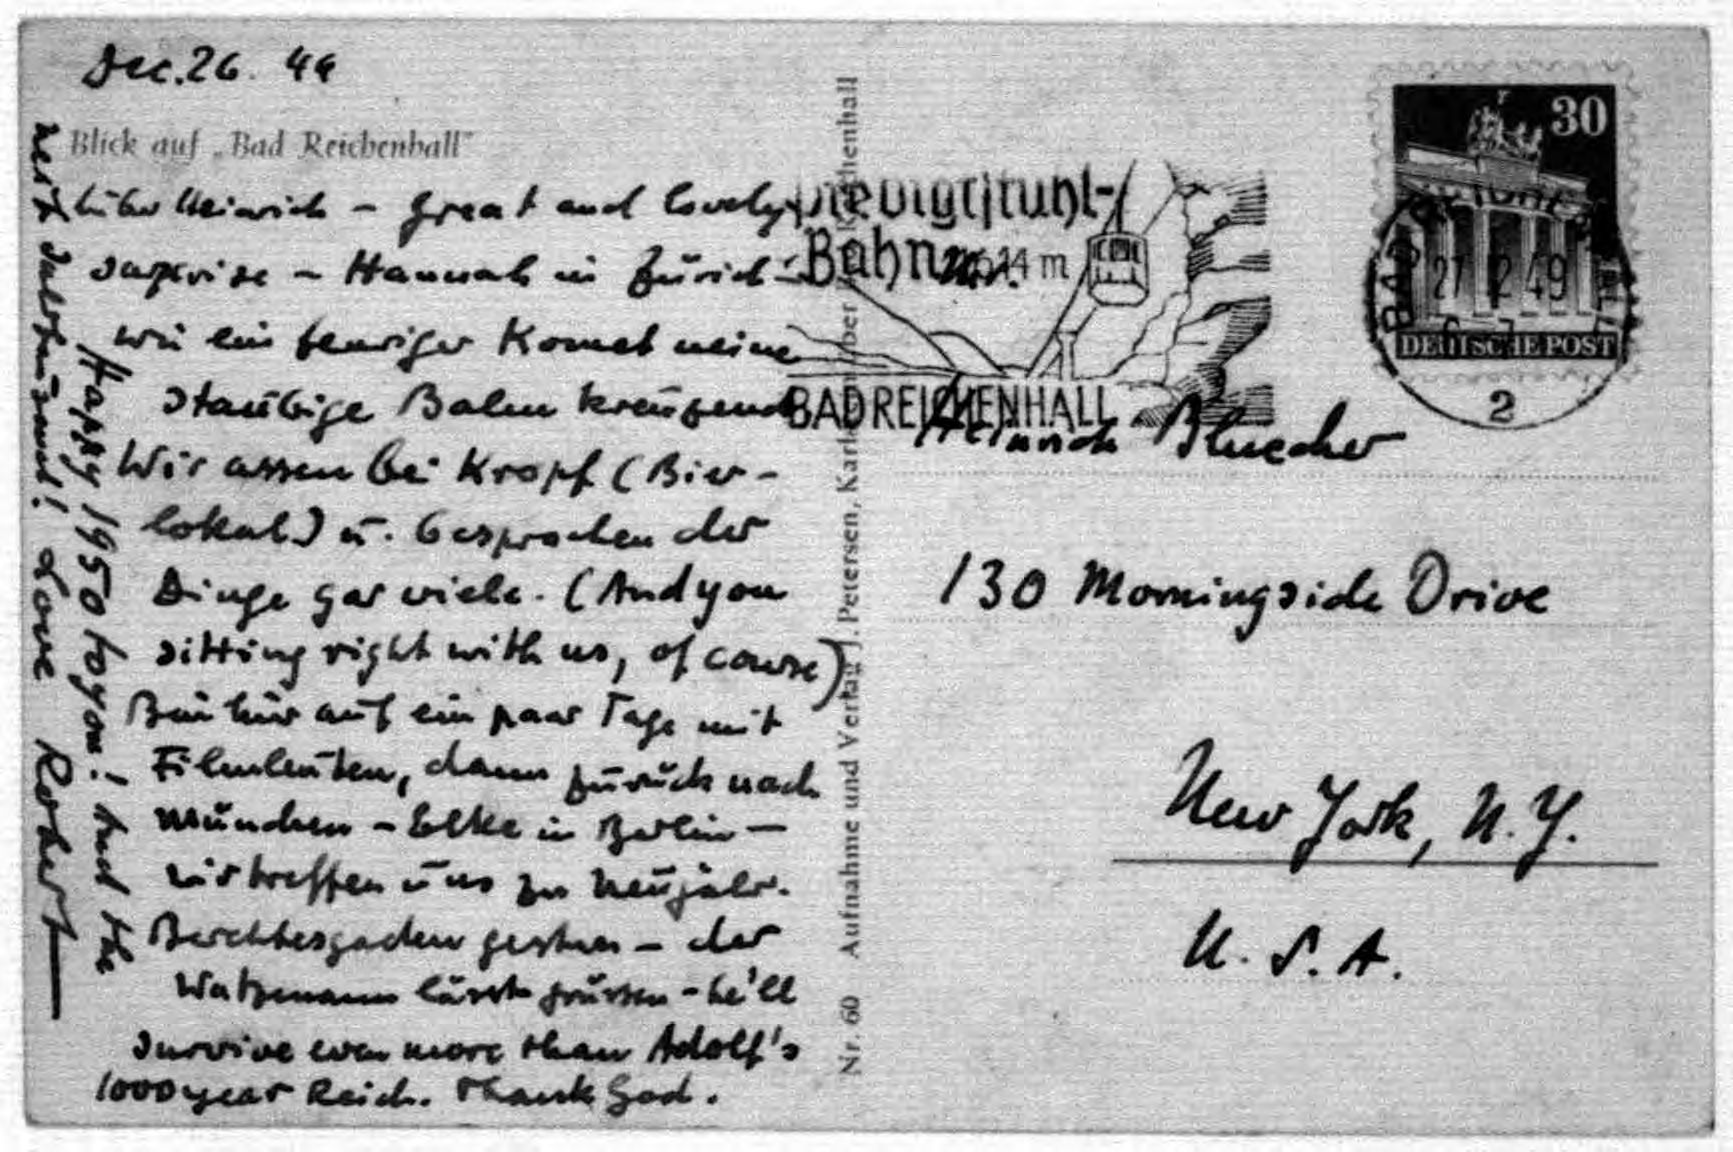 Dec. 26. 49
Blick auf „Bad Reichenhall"
Lieber Heinrich – Great and lovely
surprise – Hannah in Zürich –
wie ein feuriger Komet meine
staubige Bahn kreuzend
Wir assen bei Kropf (Bier-
lokal) u. besprachen der
Dinge gar viele. (And you
sitting right with us, of course)
Bin hier auf ein paar Tage mit
Filmleuten, dann zurück nach
München – Elke in Berlin –
wir treffen uns zu Neujahr.
Berchtesgaden gestern – der
Watzmann lässt grüssen – he'll
survive even more than Adolf's
1000 year Reich. Thank God.
Happy 1950 to you! And the
next Jahrhundert! Love Robert
Nr. 60 Aufnahme und Verlag J. Petersen, Karlstein über Bad Reichenhall
Predigtstuhl-
Bahn 1614 m
BAD REICHENHALL
30
DEUTSCHE POST
BAD REICHENHALL
27 12 49
2
Mr.
Heinrich Bluecher
130 Morningside Drive
New York, N.Y.
U.S.A.